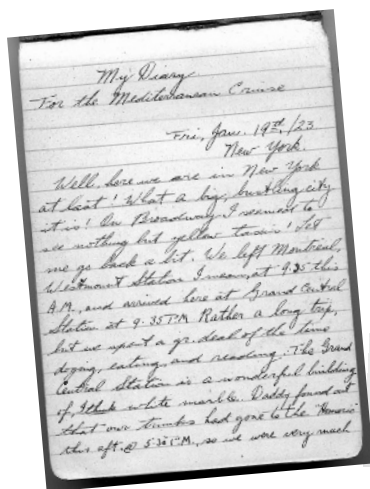 My Diary
For the Mediterranean Cruise
Fri, Jan. 19th, /23
New York
Well, here we are in New York
at last! What a big, bustling city
it is! On Broadway I seemed to
see nothing but yellow taxis! Let
me go back a bit. We left Montreal,
Westmount Station I mean, at 9.25 this
A.M., and arrived here at Grand Central
Station at 9.35 P.M. Rather a long trip,
but we spent a gr. deal of the time
dozing, eating, and reading. The Grand
Central Station is a wonderful building
of, I think white marble. Daddy found out
that our trunks had gone to the "Homeric"
this aft. @ 5:30 P.M., so we were very much